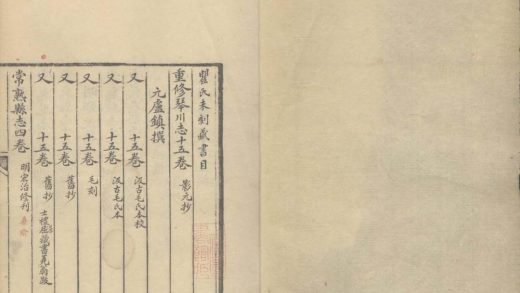 瞿氏未刻藏書目
重修琴川志十五卷 影元抄
元盧鎮撰
又 十五卷 汲古毛氏本校
又 十五卷 汲古毛氏本
又 十五卷 毛刻
又 十五卷 舊抄
又 十五卷 舊抄 士禮居藏書
常熟縣志四卷 明宏治修刊